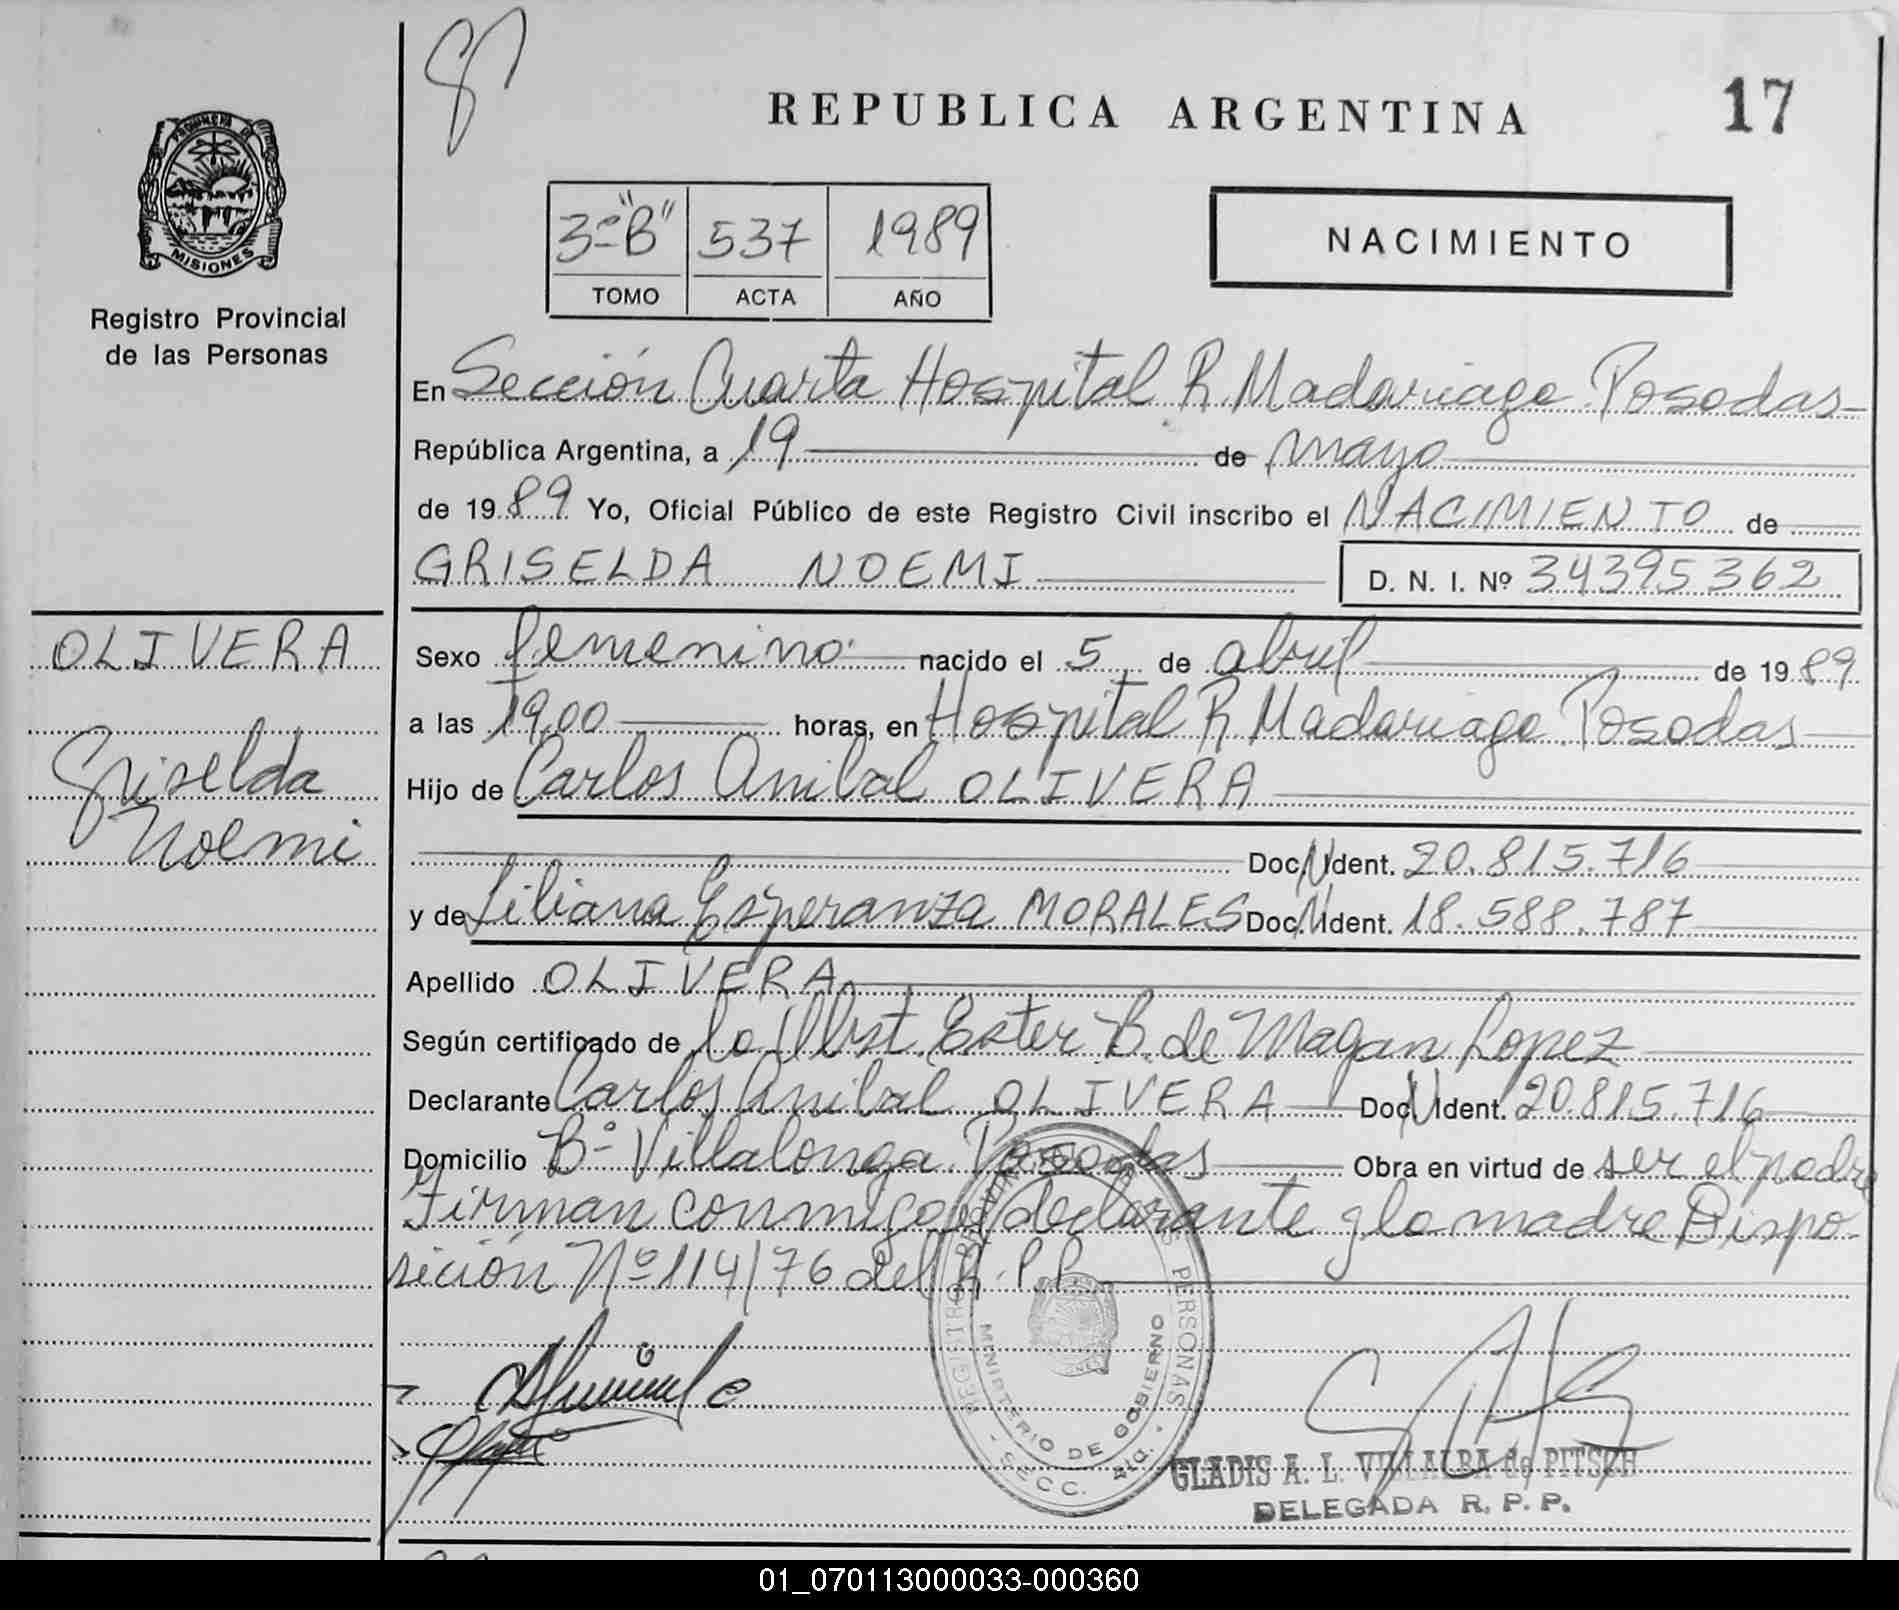 REPUBLICA ARGENTINA
17
PROVINCIA DE
MISIONES
Registro Provincial
de las Personas
3º "B" 537 1989
TOMO ACTA AÑO
NACIMIENTO
En Sección Cuarta Hospital R. Madariaga Posadas
República Argentina, a 19 de mayo
de 1989 Yo, Oficial Público de este Registro Civil inscribo el NACIMIENTO de
GRISELDA NOEMI
D. N. I. Nº 34395362
OLIVERA
Griselda
Noemi
Sexo femenino nacido el 5 de abril de 1989
a las 19,00 horas, en Hospital R. Madariaga Posadas
Hijo de Carlos Anibal OLIVERA
Doc. N Ident. 20.815.716
y de Liliana Esperanza MORALES Doc. N Ident. 18.588.787
Apellido OLIVERA
Según certificado de la Obst. Ester B. de Magan Lopez
Declarante Carlos Anibal OLIVERA Doc. N Ident. 20.815.716
Domicilio Bº Villalonga Posadas Obra en virtud de ser el padre
Firman conmigo el declarante y la madre Dispo-
sición Nº 114/76 del R.P.P.
REGISTRO PROVINCIAL DE LAS PERSONAS
MINISTERIO DE GOBIERNO
SECC. 4ta.
GLADIS A. L. VILLALBA de PITSCH
DELEGADA R. P. P.
01_070113000033-000360